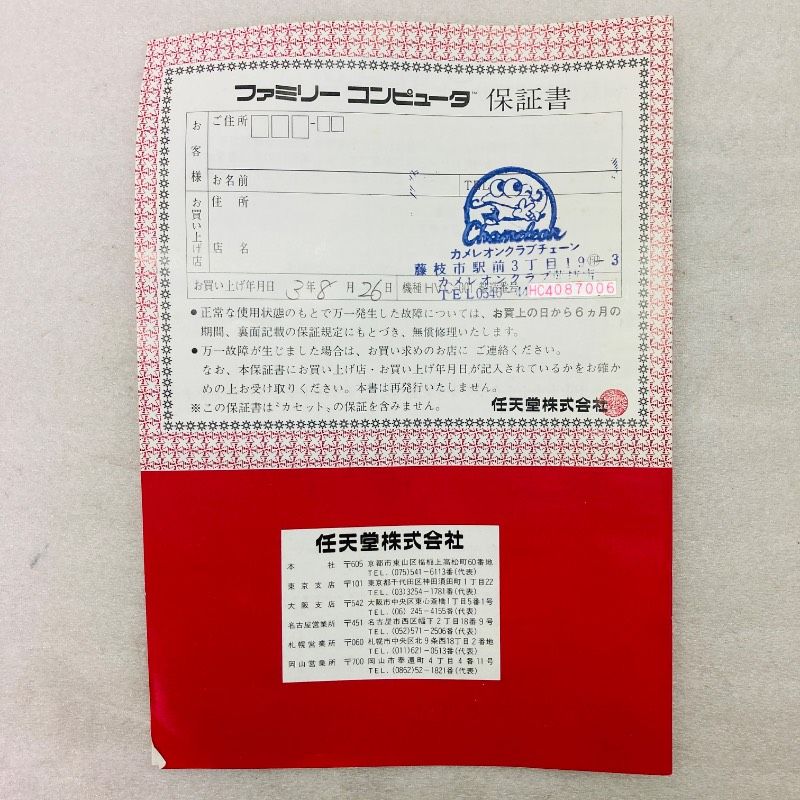 ファミリー コンピュータ™ 保証書
お客様
ご住所
お名前
TEL
お買い上げ店
住所
店名
Chameleon
カメレオンクラブチェーン
藤枝市駅前3丁目19-3
カメレオンクラブ
お買い上げ年月日 3年8月26日 機種HVC-001 製造番号 HC4087006
●正常な使用状態のもとで万一発生した故障については、お買上の日から6ヵ月の
期間、裏面記載の保証規定にもとづき、無償修理いたします。
●万一故障が生じました場合は、お買い求めのお店に ご連絡ください。
なお、本保証書にお買い上げ店・お買い上げ年月日が記入されているかをお確か
めの上お受け取りください。本書は再発行いたしません。
※この保証書は〝カセット〟の保証を含みません。
任天堂株式会社
任天堂株式会社
本社 〒605 京都市東山区福稲上高松町60番地
TEL.(075)541-6113番(代表)
東京支店 〒101 東京都千代田区神田須田町1丁目22
TEL.(03)3254-1781番(代表)
大阪支店 〒542 大阪市中央区東心斎橋1丁目5番1号
TEL.(06) 245-4155番(代表)
名古屋営業所 〒451 名古屋市西区幅下2丁目18番9号
TEL.(052)571-2506番(代表)
札幌営業所 〒060 札幌市中央区北9条西18丁目2番地
TEL.(011)621-0513番(代表)
岡山営業所 〒700 岡山市奉還町4丁目4番11号
TEL.(0862)52-1821番(代表)